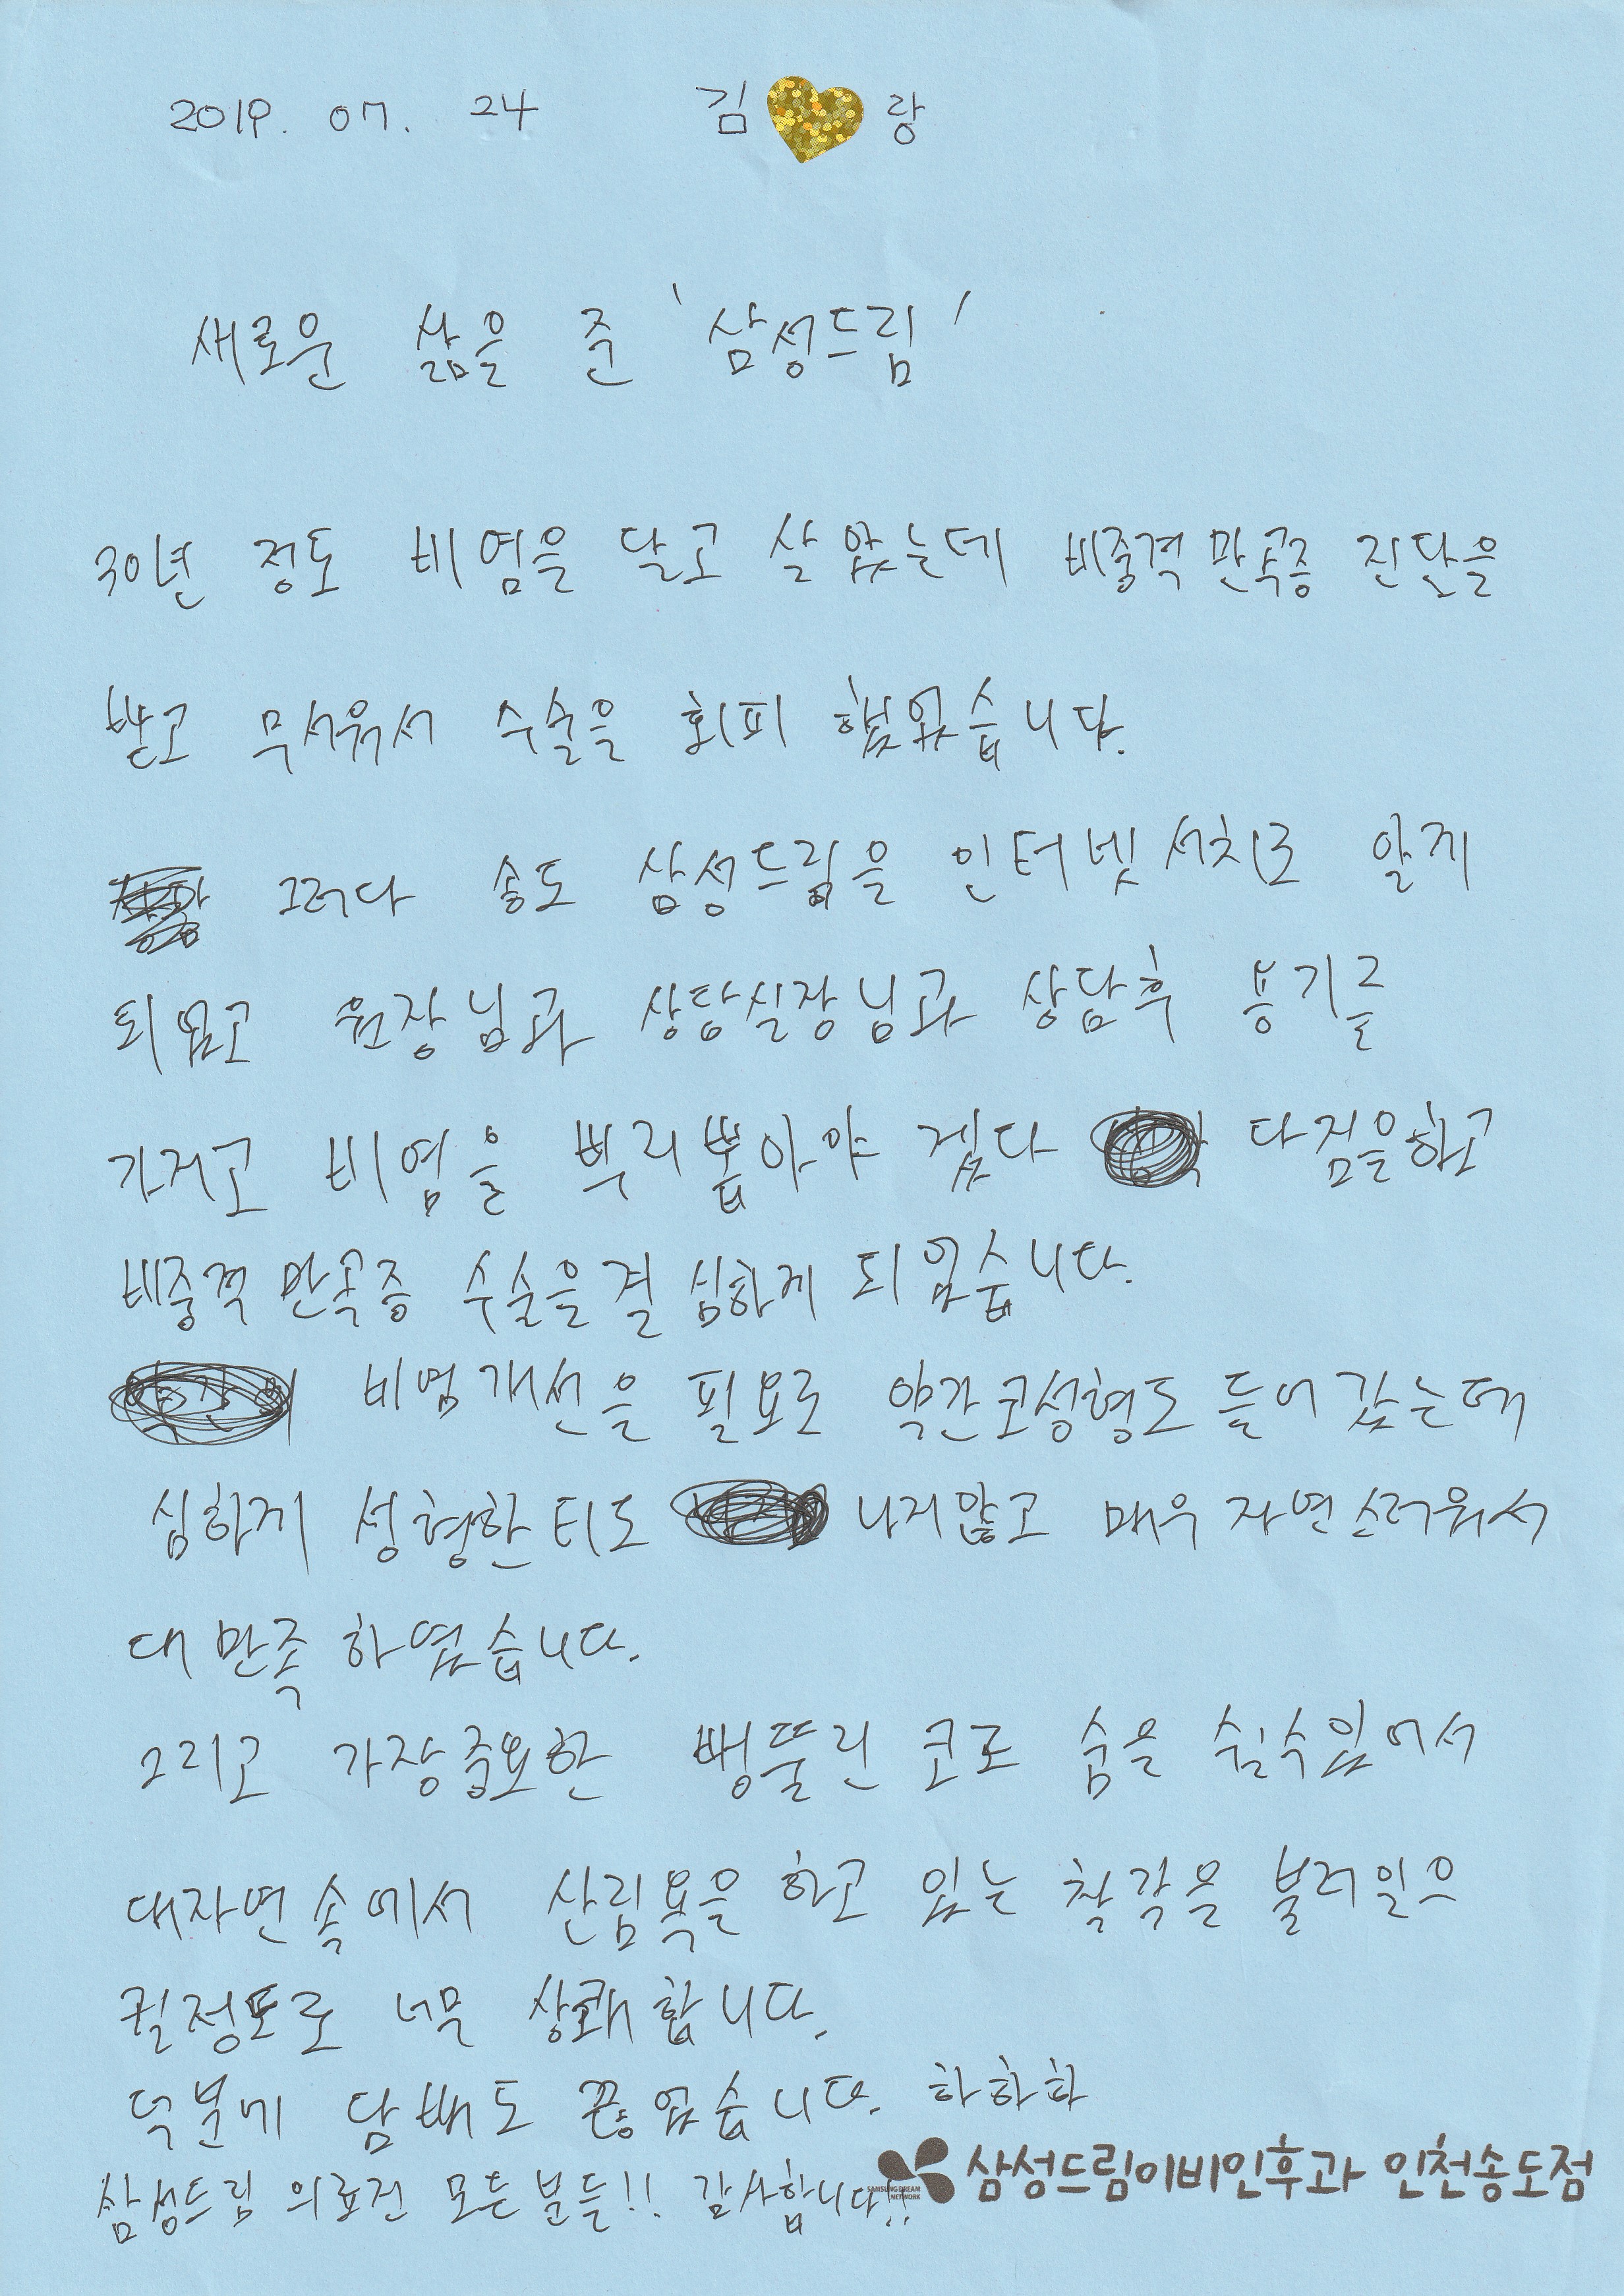 2019. 07. 24 김 랑
새로운 삶을 준 '삼성드림'
30년 정도 비염을 달고 살았는데 비중격만곡증 진단을
받고 무서워서 수술을 회피 했었습니다.
그러다 송도 삼성드림을 인터넷 서치로 알게
되었고 원장님과 상담실장님과 상담후 용기를
가지고 비염을 뿌리뽑아야 겠다 다짐을하고
비중격 만곡증 수술을결심하게 되었습니다.
비염개선을 필요로 약간코성형도 들어갔는데
심하게 성형한티도 나지않고 매우 자연스러워서
대만족 하였습니다.
그리고 가장중요한 뻥뚤린 코로 숨을 쉴수있어서
대자연속에서 산림욕을 하고 있는 착각을 불러일으
킬정도로 너무 상쾌합니다.
덕분에 담배도 끊었습니다. 하하하
삼성드림 의료진 모든분들!! 감사합니다!!
SAMSUNG DREAM NETWORK 삼성드림이비인후과 인천송도점